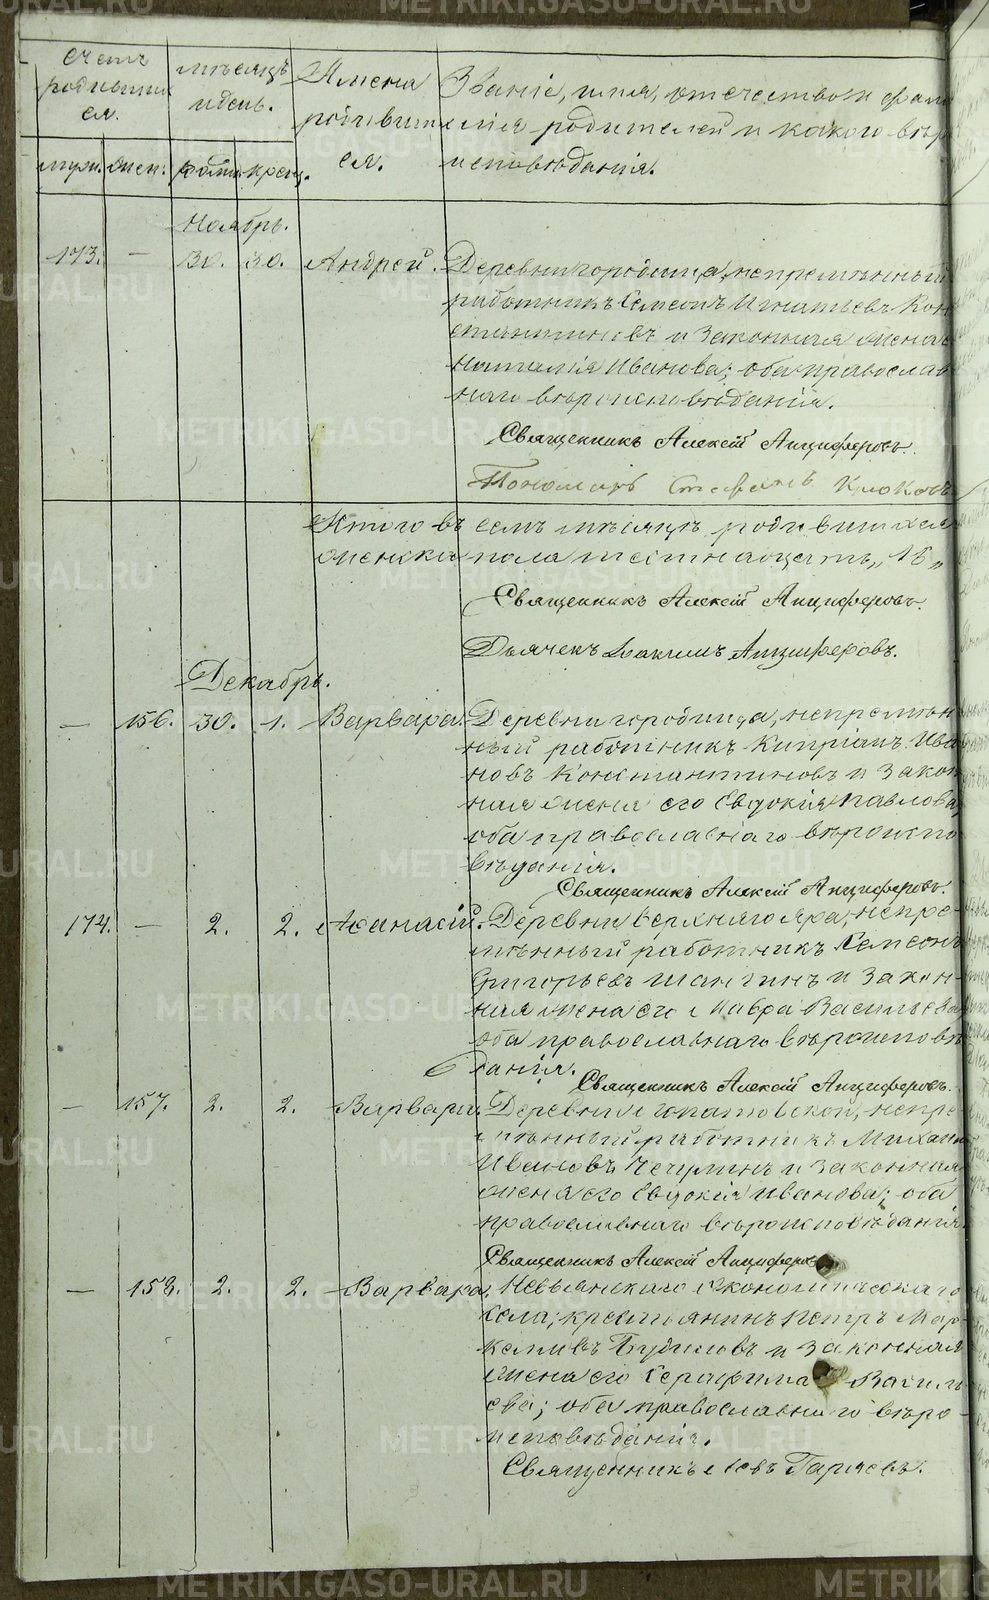 METRIKI.GASO-URAL.RU
Счетъ
родивших
ся.
мѣсяцъ
и день.
Имена
родившихся.
Званіе, имя, отчество и фами
лія родителей и какого вѣро
исповѣданія.
муж. жен. рожд. крещ.
Ноябрь.
173. — 30. 30. Андрей. Деревни городища, непремѣнный
работникъ Симеонъ Игнатьевъ Кон
стантиновъ и законная жена
Наталія Иванова; оба православ
наго вѣроисповѣданія.
Священникъ Алексій Анциферовъ.
Пономарь Стефанъ Клюковъ
Итого въ семъ мѣсяцѣ родившихся
женска пола шестнадцать „16„
Священникъ Алексій Анциферовъ.
Дьячекъ Іоакимъ Анциферовъ.
Декабрь.
— 156. 30. 1. Варвара. Деревни городища, непремѣн
ный работникъ Кипріанъ Ива
новъ Константиновъ и закон
ная жена его Евдокія Павлова,
оба православнаго вѣроиспо
вѣданія.
Священникъ Алексій Анциферовъ.
174. — 2. 2. Аѳанасій. Деревни Верхняго Яра, непре-
мѣнный работникъ Симеонъ
Григорьевъ Шангинъ и закон-
ная жена его Мавра Васильева
оба православнаго вѣроисповѣ
данія.
Священникъ Алексій Анциферовъ.
— 157. 2. 2. Варвара. Деревни непре
мѣнный работникъ Михаилъ
Ивановъ Чечулинъ и законная
жена его Евдокія Иванова; оба
православнаго вѣроисповѣданія.
Священникъ Алексій Анциферовъ
— 158. 2. 2. Варвара. Невьянскаго экономическаго
села, крестьянинъ Петръ Мар
келовъ Будиловъ и законная
жена его Серафима Василь
ева; оба православнаго вѣро-
исповѣданія.
Священникъ Левъ Гаряевъ.